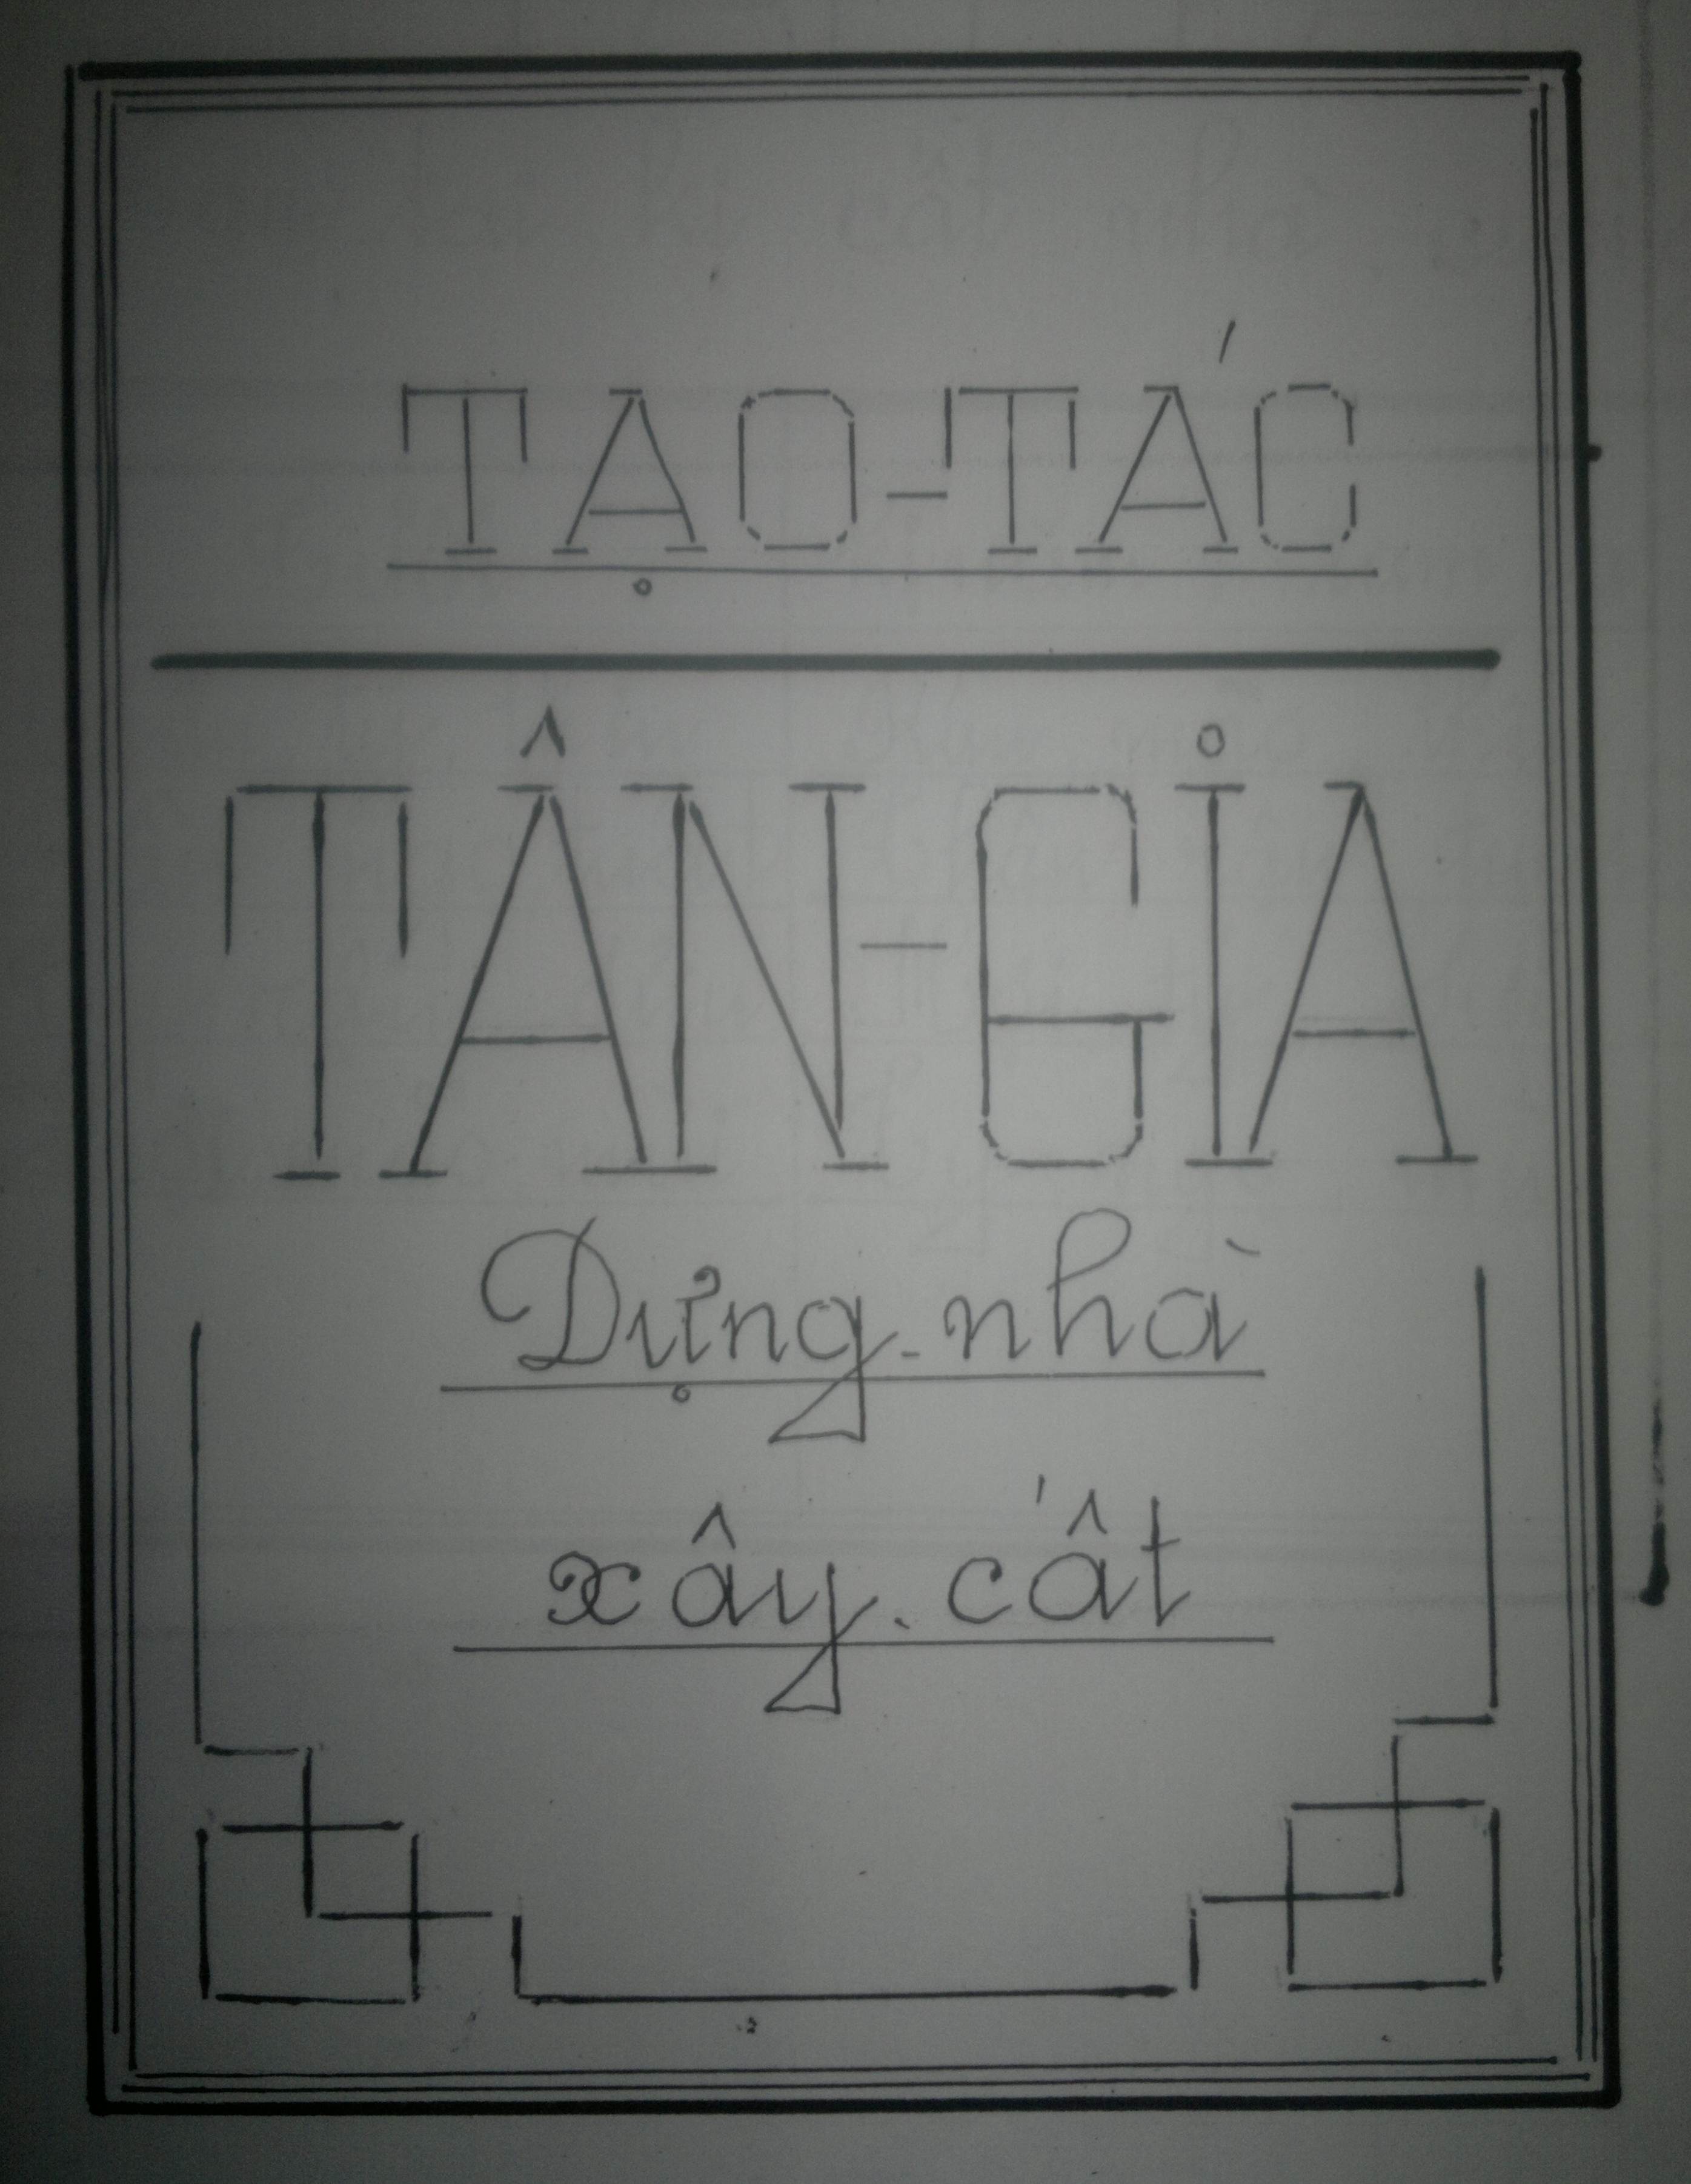 TẠO-TÁC
TÂN-GIA
Dựng-nhà
xây-cất